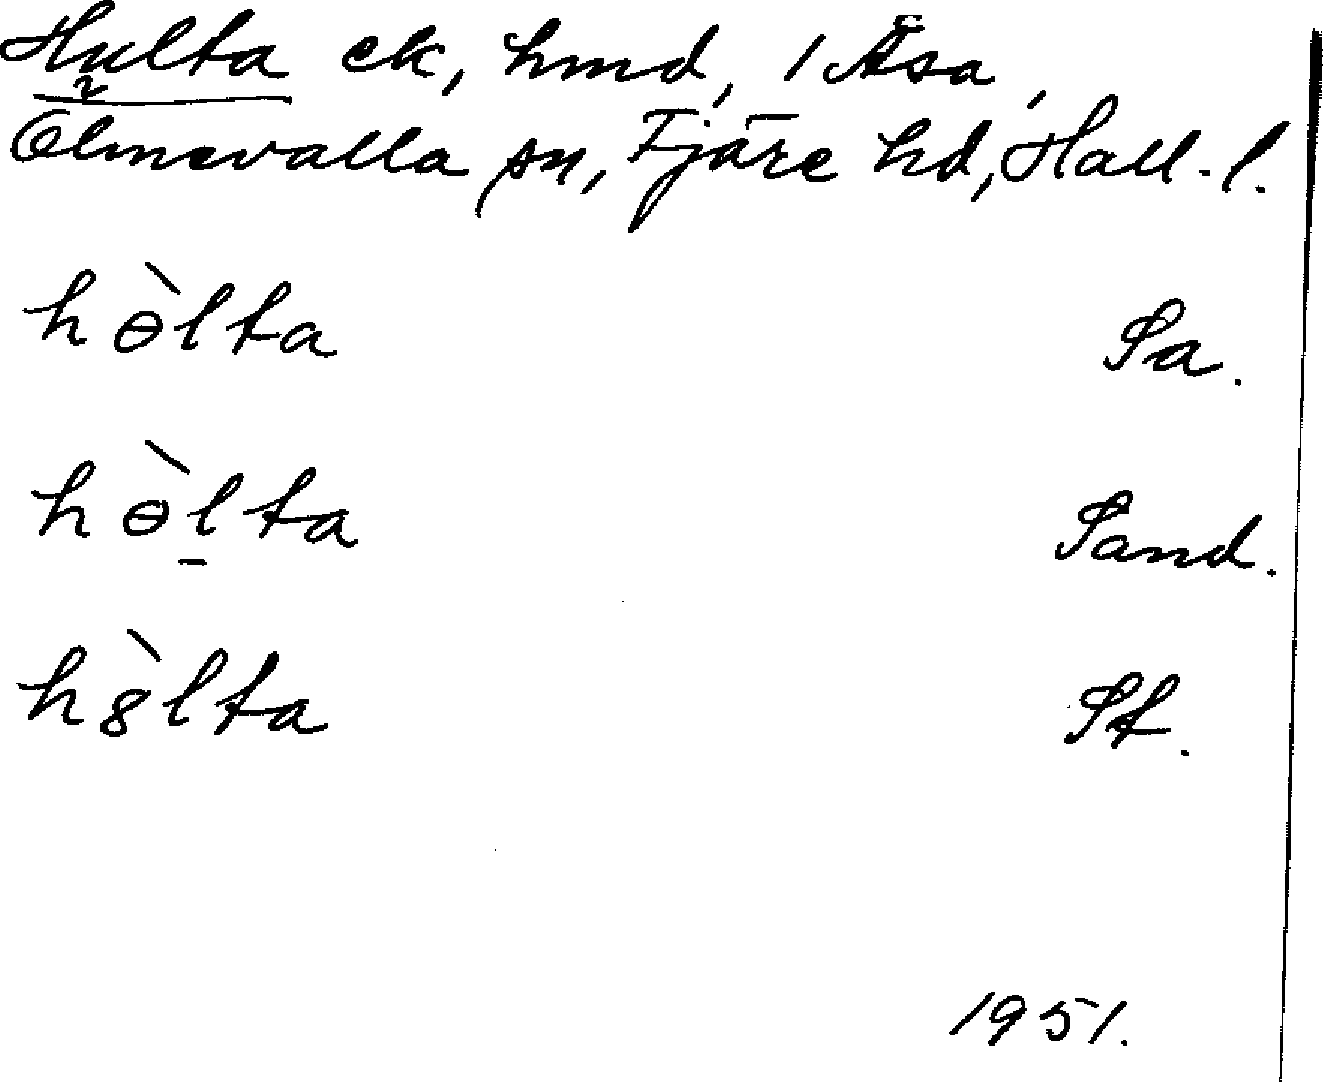 Hulta ek, hmd, 1 Åsa,
Ölmevalla sn, Fjäre hd, Hall. l.
hɵ̀lta Sa.
hɵ̀l̠ta Sand.
h8̀lta St.
1951.